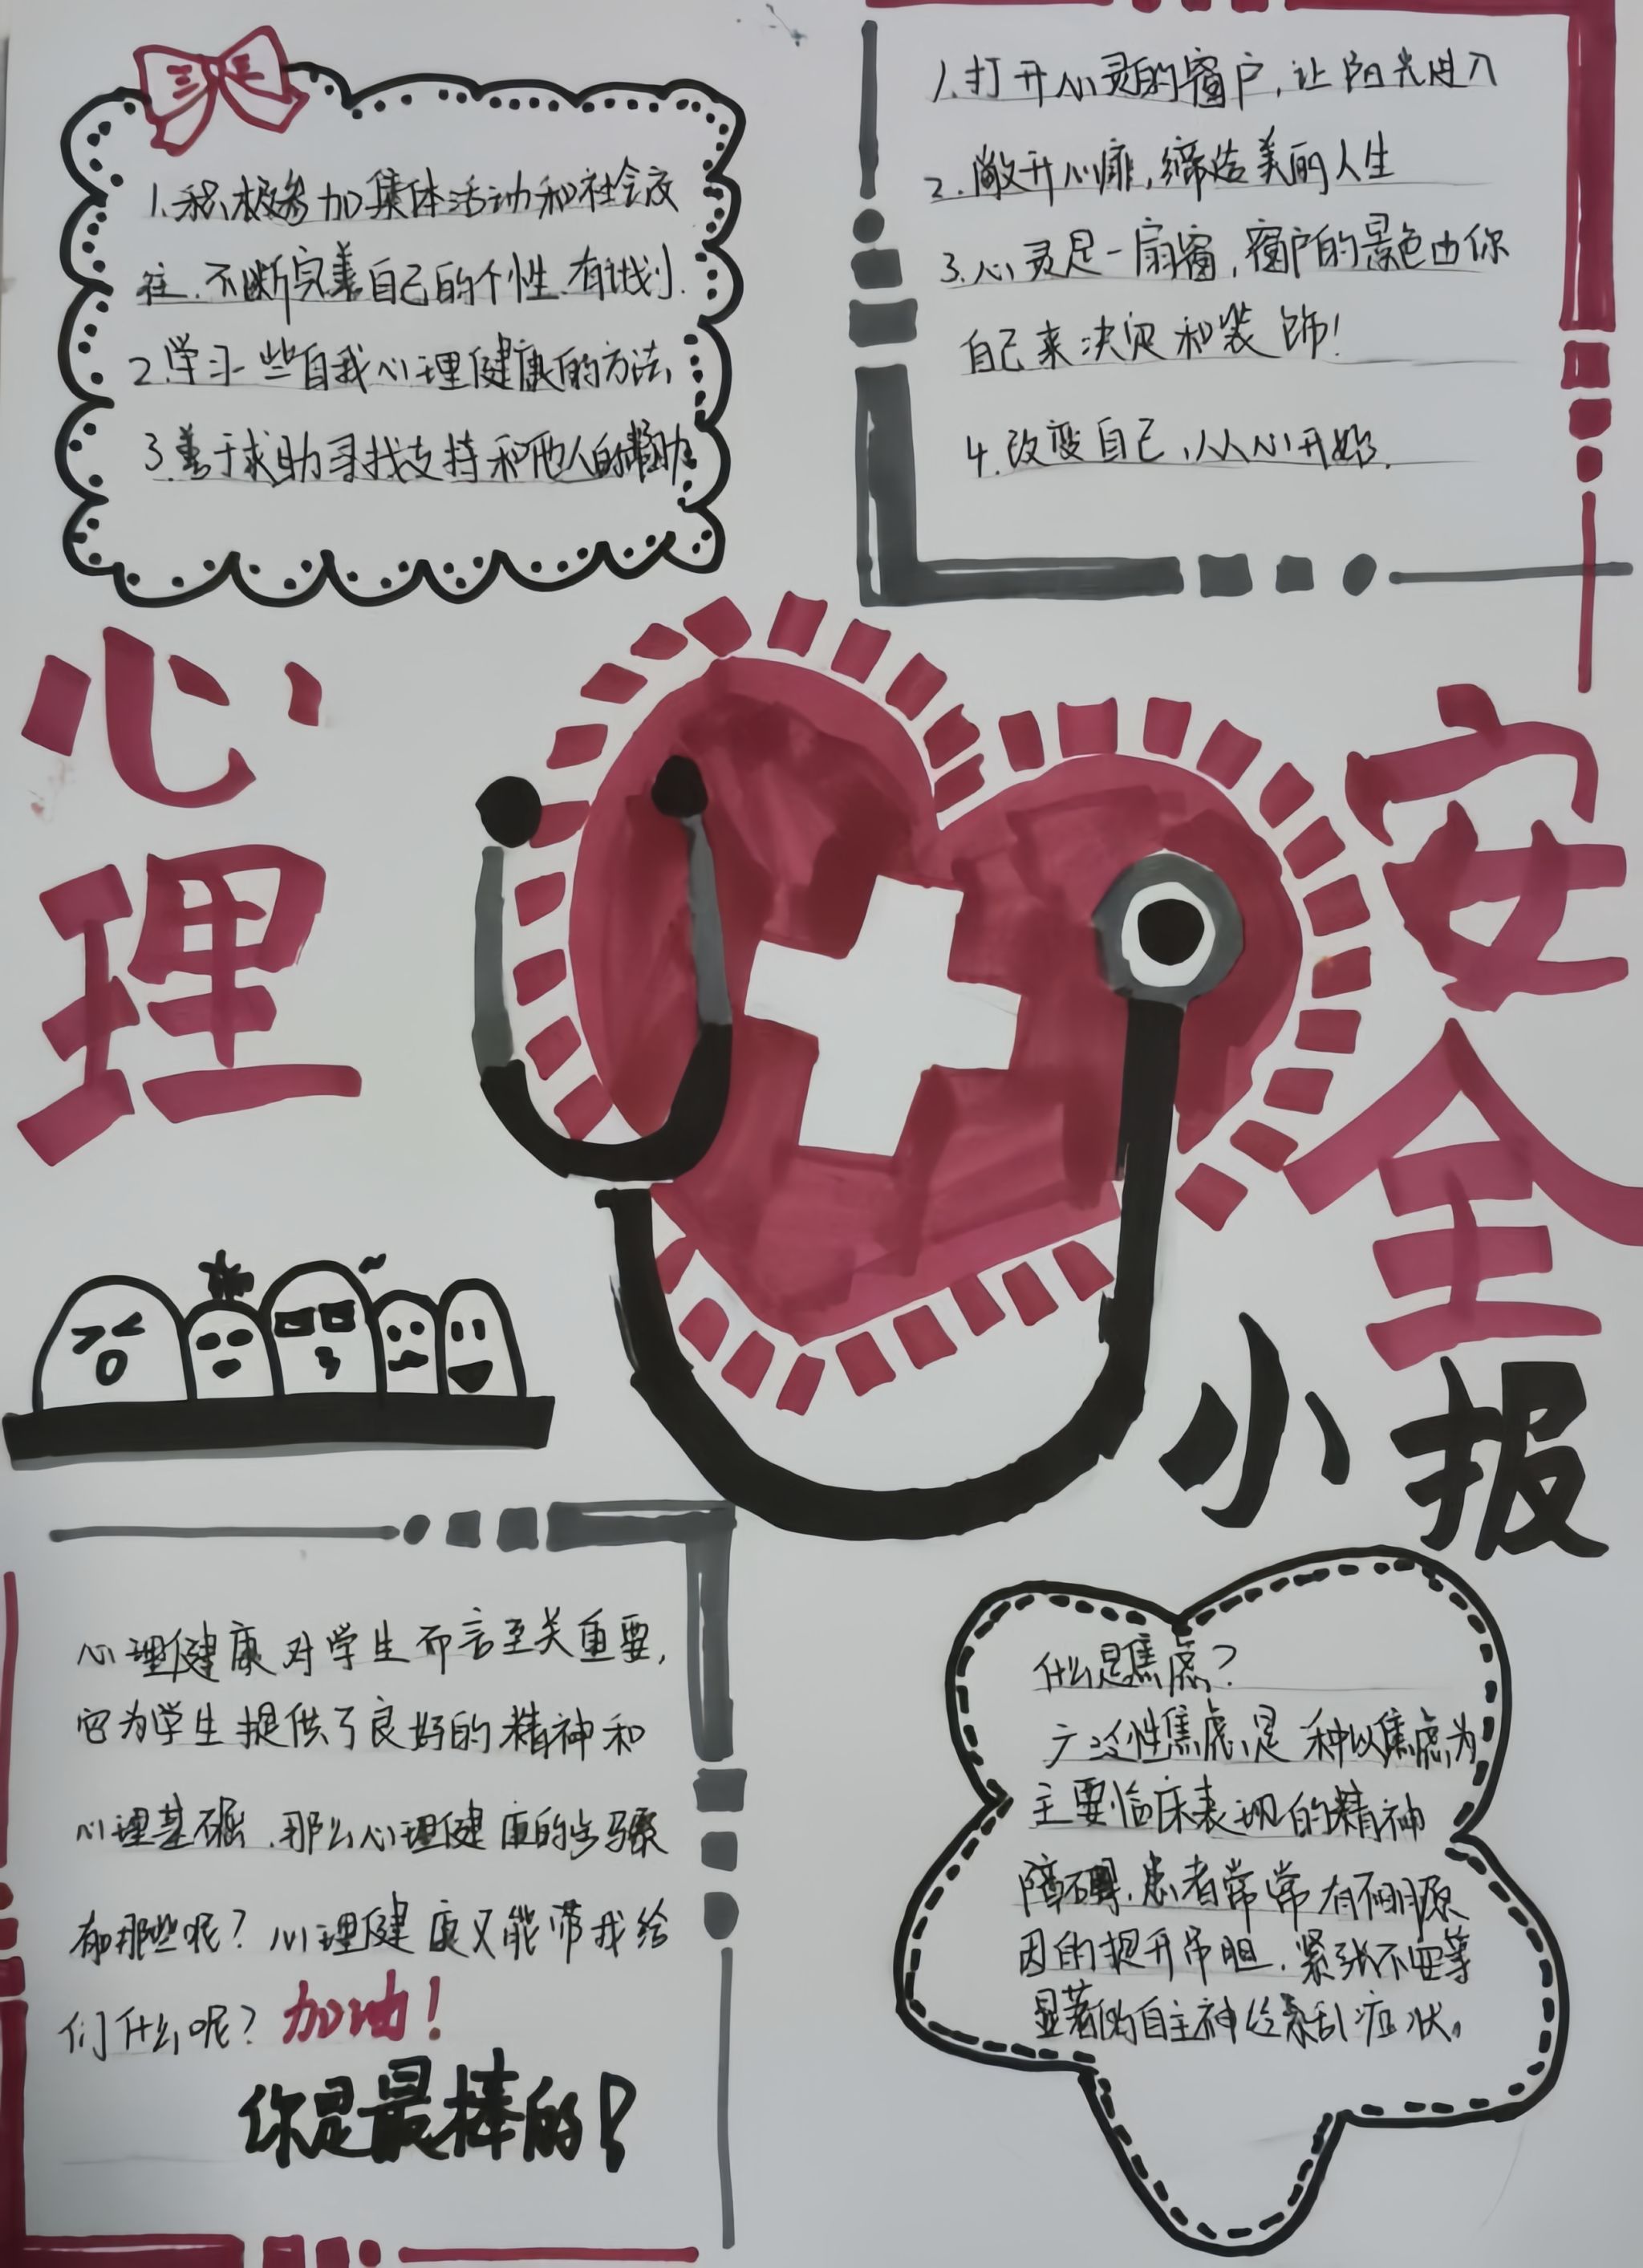 1.积极参加集体活动和社会交
往.不断完善自己的个性.有计划.
2.学习一些自我心理健康的方法,
3.善于求助寻找支持和他人的帮助.
1.打开心灵的窗户,让阳光进入
2.敞开心扉,缔造美丽人生
3.心灵是一扇窗,窗户的景色由你
自己来决定和装饰!
4.改变自己,从心开始.
心理
安全
小报
心理健康对学生而言至关重要,
它为学生提供了良好的精神和
心理基础.那么心理健康的步骤
有那些呢?心理健康又能带我给
们什么呢?加油!
你是最棒的!
什么是焦虑?
广泛性焦虑,是一种以焦虑为
主要临床表现的精神
障碍.患者常常有不明原
因的提升吊胆.紧张不安等
显著的自主神经紊乱症状。